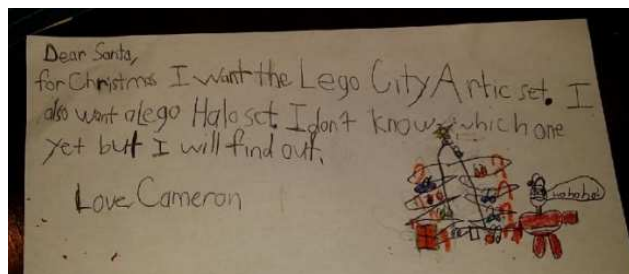 Dear Santa,
for Christmas I want the Lego City Artic set. I
also want a Lego Halo set. I don't know which one
yet but I will find out.
Love Cameron
hohoho!